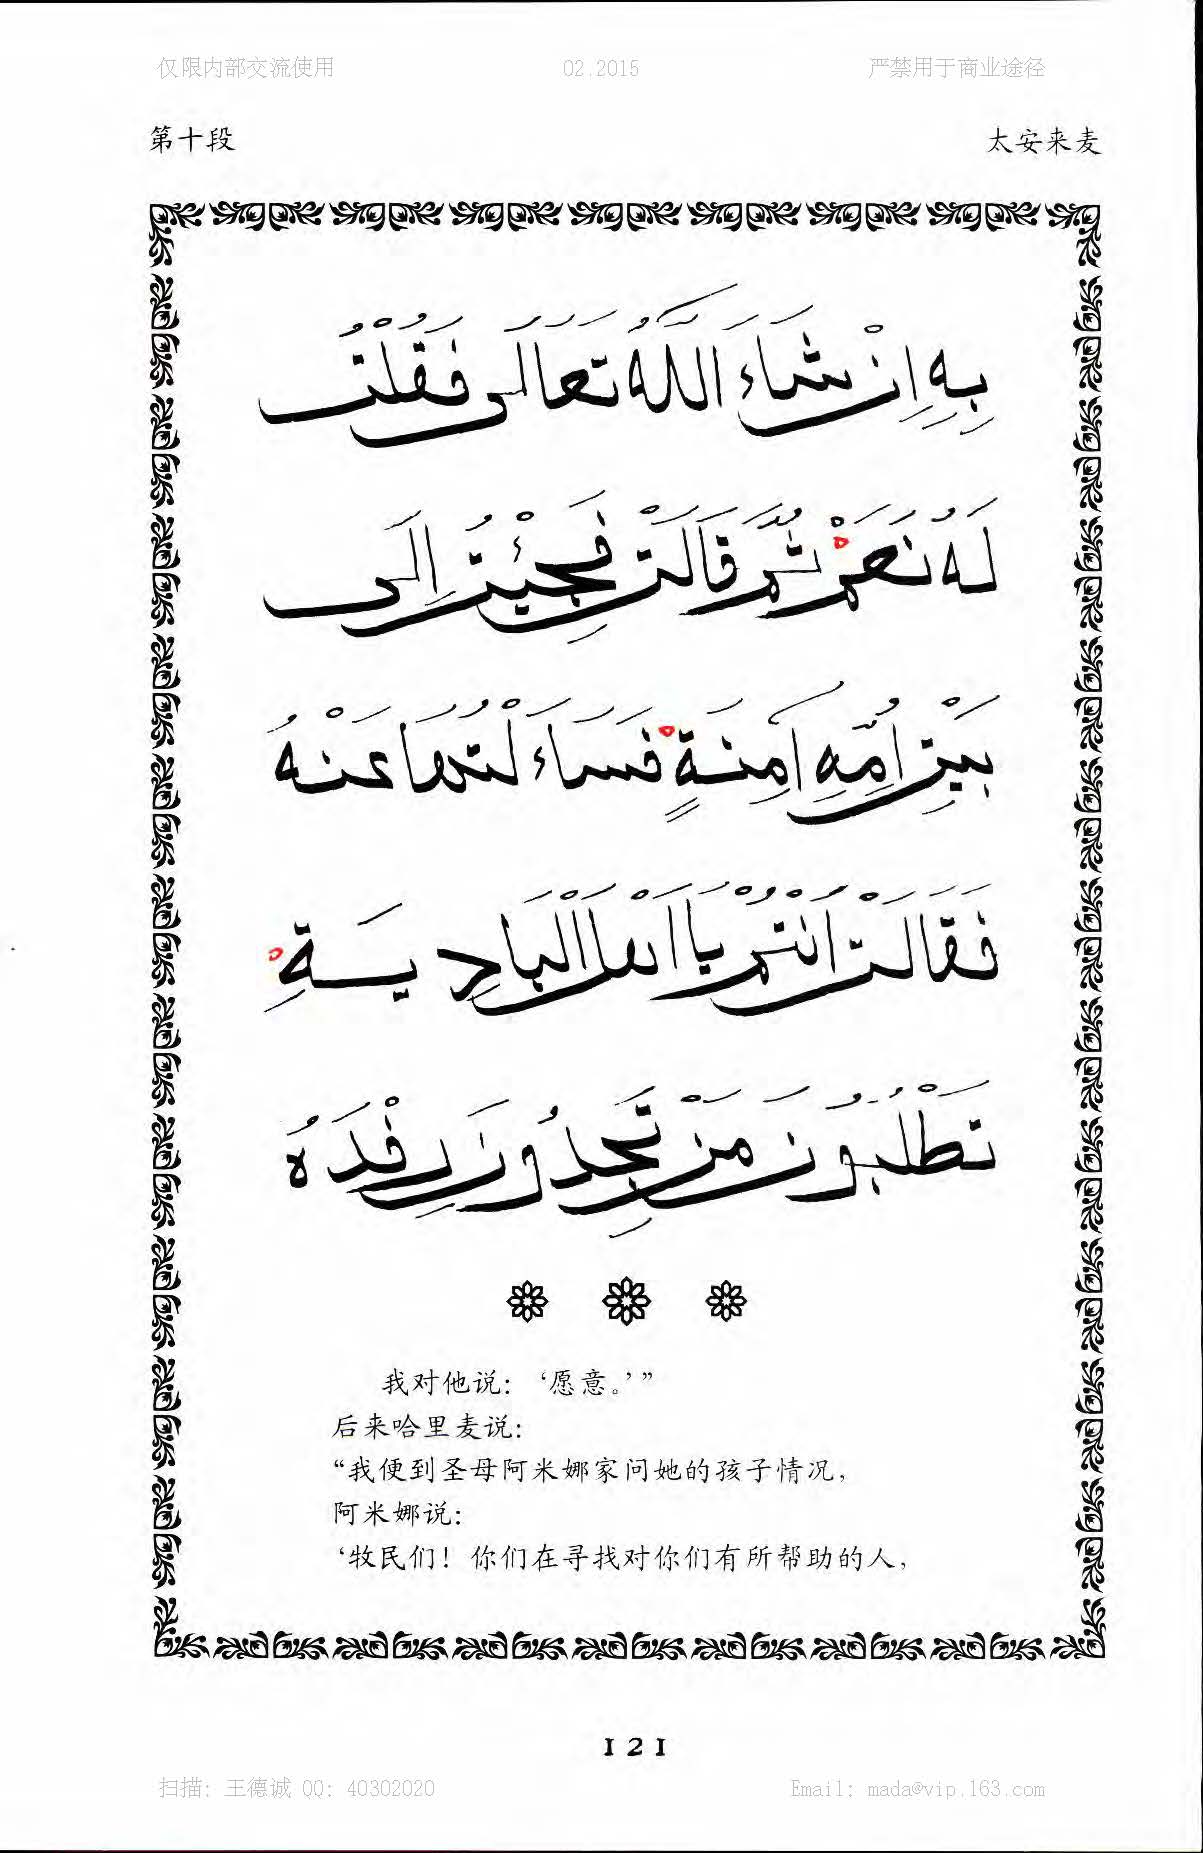 仅限内部交流使用 02.2015 严禁用于商业途径
第十段 太安来麦
بِهِ اِنْ شَاءَ اللّٰهُ تَعَالَى فَقُلْتُ
لَهُ نَعَمْ ثُمَّ قَالَتْ فَجِئْتُ اِلَى
بَيْتِ اُمِّهِ اٰمِنَةٍ فَسَاءَلْتُهَا عَنْهُ
فَقَالَتْ اَنْتُمْ يَا اَهْلَ الْبَادِيَةِ
تَطْلُبُونَ مَنْ تَجِدُونَ رِفْدَهُ
我对他说：‘愿意。’”
后来哈里麦说：
“我便到圣母阿米娜家问她的孩子情况，
阿米娜说：
‘牧民们！你们在寻找对你们有所帮助的人，
121
扫描：王德诚 QQ：40302020 Email：mada@vip.163.com